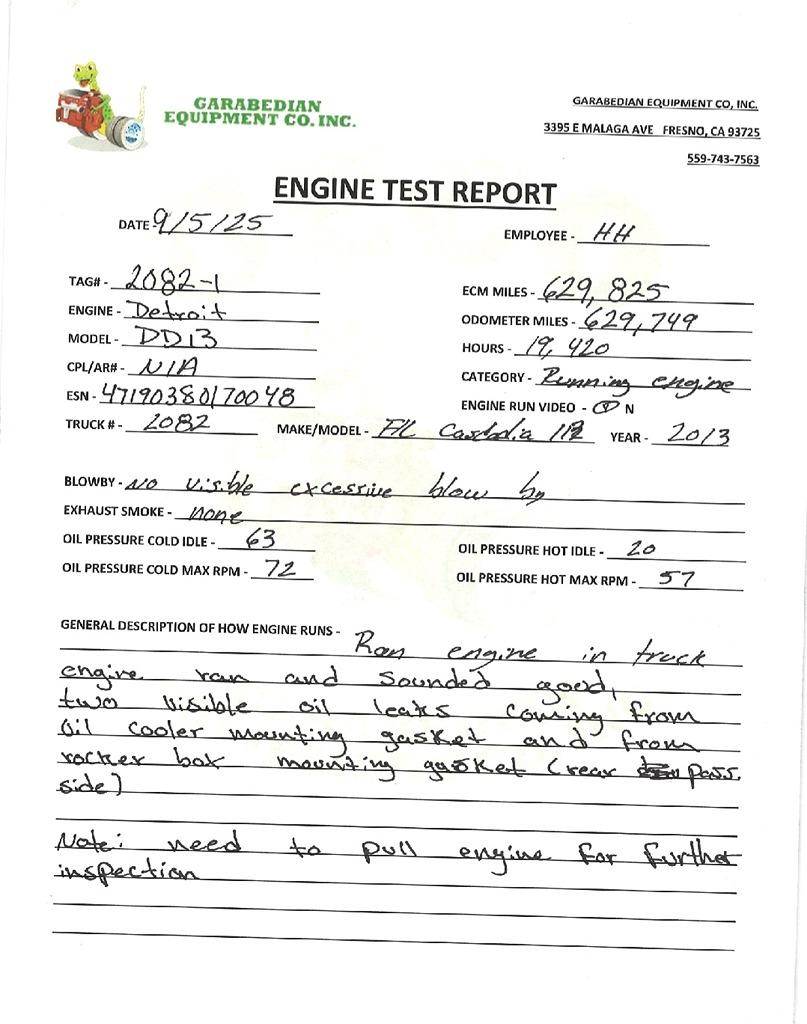 GARABEDIAN
EQUIPMENT CO. INC.
GARABEDIAN EQUIPMENT CO, INC.
3395 E MALAGA AVE FRESNO, CA 93725
559-743-7563
ENGINE TEST REPORT
DATE - 9/5/25
EMPLOYEE - HH
TAG# - 2082-1
ECM MILES - 629,825
ENGINE - Detroit
ODOMETER MILES - 629,749
MODEL - DD13
HOURS - 19,420
CPL/AR# - N/A
CATEGORY - Running engine
ESN - 47190380170048
ENGINE RUN VIDEO - Y N
TRUCK # - 2082 MAKE/MODEL - F/L Casbdia YEAR - 2013
BLOWBY - No visible excessive blow by
EXHAUST SMOKE - none
OIL PRESSURE COLD IDLE - 63
OIL PRESSURE HOT IDLE - 20
OIL PRESSURE COLD MAX RPM - 72
OIL PRESSURE HOT MAX RPM - 57
GENERAL DESCRIPTION OF HOW ENGINE RUNS - Ran engine in truck
engine ran and sounded good,
two visible oil leaks coming from
Oil cooler mounting gasket and from
rocker box mounting gasket (rear pass.
side)
Note: need to pull engine for further
inspection